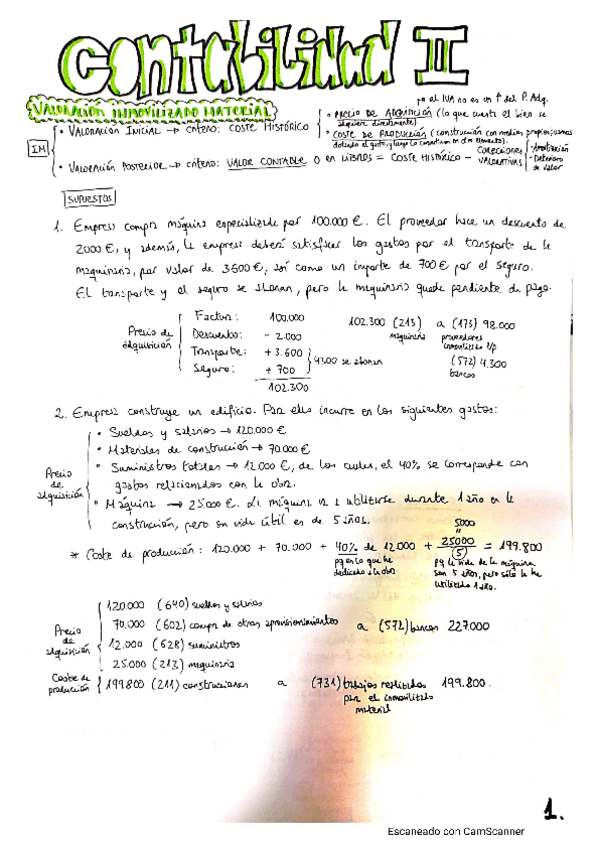 Contabilidad II
VALORACIÓN INMOVILIZADO MATERIAL
pq el IVA no es un ↑ del P. Adq.
IM
• Valoración Inicial → criterio: COSTE HISTÓRICO
• PRECIO DE ADQUISICIÓN (lo que cuesta el bien se adquiere directamente)
• COSTE DE PRODUCCIÓN (construcción con medios propios;
• Valoración Posterior → criterio: VALOR CONTABLE o EN LIBROS = COSTE HISTÓRICO - CORRECCIONES VALORATIVAS
• Amortización
• Deterioro de valor
SUPUESTOS
1. Empresa compra máquina especializada por 100.000 €. El proveedor hace un descuento de
2000 €, y además, la empresa deberá satisfacer los gastos por el transporte de la
maquinaria, por valor de 3600 €, así como un importe de 700 € por el seguro.
El transporte y el seguro se abonan, pero la maquinaria queda pendiente de pago.
Precio de adquisición
Factura: 100.000
Descuento: - 2.000
Transporte: + 3.600
Seguro: + 700
102.300
4300 se abonan
102.300 (213) maquinaria a (173) 98.000
proveedores inmovilizado l/p
(572) 4.300
bancos
2. Empresa construye un edificio. Para ello incurre en los siguientes gastos:
Precio de adquisición
• Sueldos y salarios → 120.000 €
• Materiales de construcción → 70.000 €
• Suministros totales → 12.000 €, de los cuales, el 40% se corresponde con
gastos relacionados con la obra.
• Máquina → 25.000 €. La máquina va a utilizarse durante 1 año en la
construcción, pero su vida útil es de 5 años.
* Coste de producción: 120.000 + 70.000 + 40% de 12.000 + 25000/5 = 199.800
5000
pq es lo que ha dedicado a la obra
pq la vida de la máquina
son 5 años, pero sólo la ha
utilizado 1 año.
Precio de adquisición
120.000 (640) sueldos y salarios
70.000 (602) compra de otros aprovisionamientos a (572) bancos 227.000
12.000 (628) suministros
25.000 (213) maquinaria
Coste de producción
199.800 (211) construcciones a (731) trabajos realizados 199.800.
para el inmovilizado
material
1.
Escaneado con CamScanner